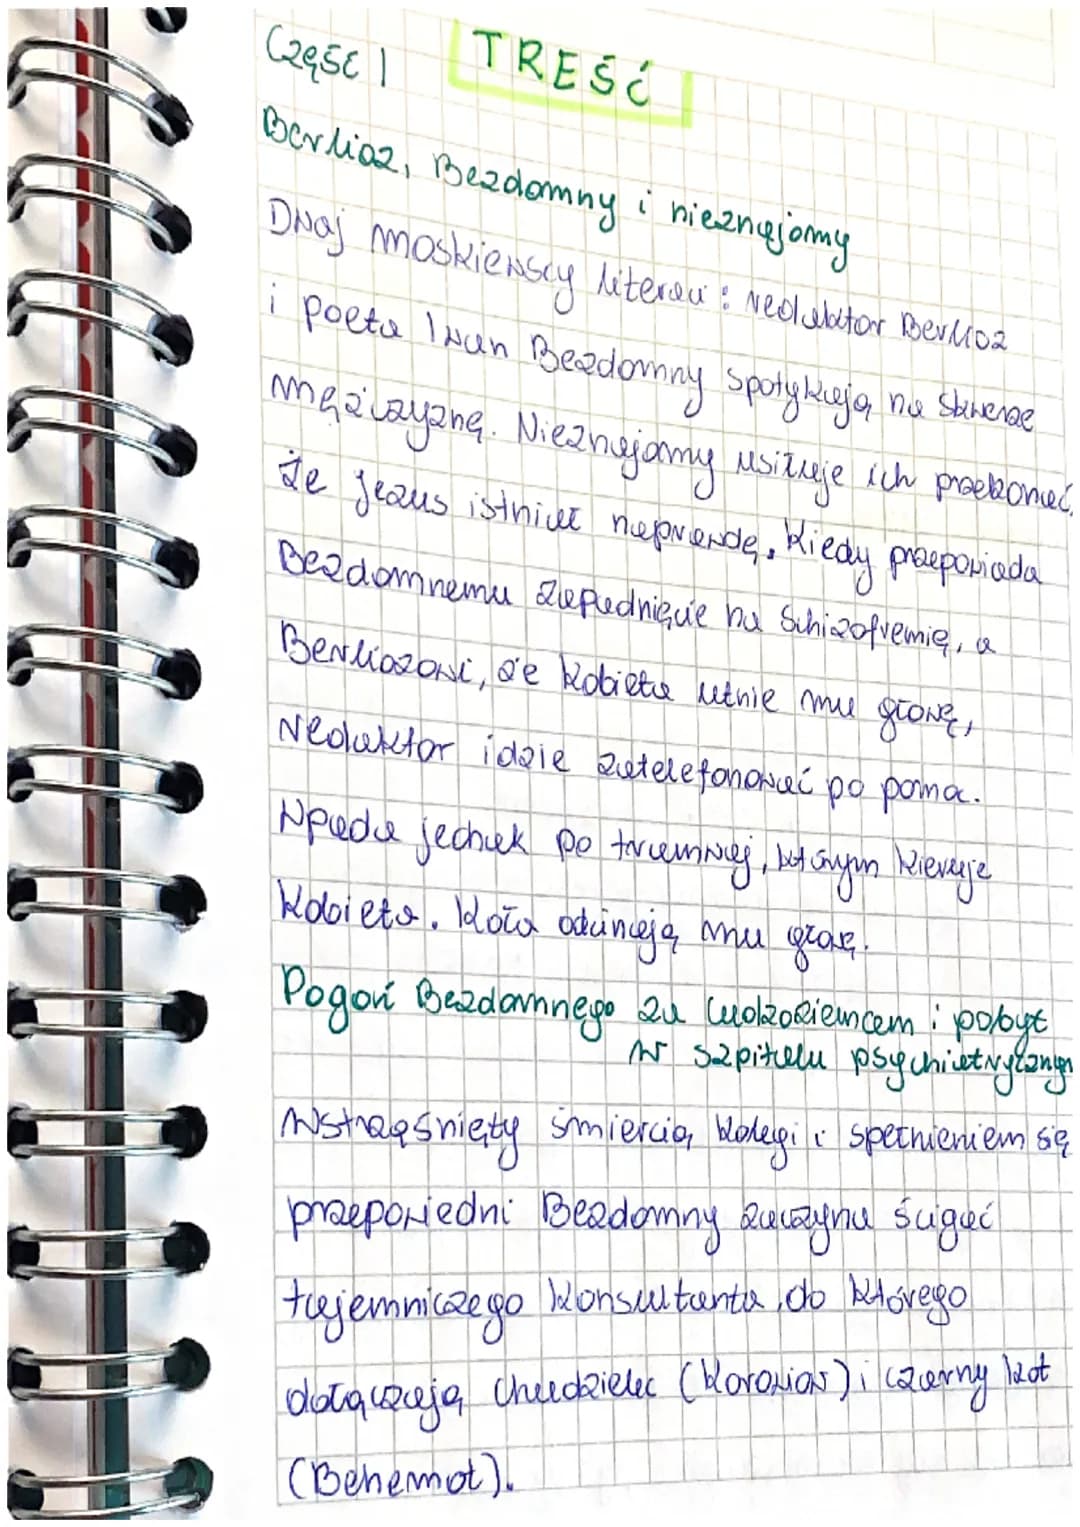 Część 1 TREŚĆ
Berlioz, Bezdomny i nieznajomy
Dwaj moskiewscy literaci: redaktor Berlioz
i poeta Iwan Bezdomny spotykają na skwerze
mężczyznę. Nieznajomy usiłuje ich przekonać,
że Jezus istniał naprawdę. Kiedy przepowiada
Bezdomnemu zapadnięcie na schizofremię, a
Berliozowi, że kobieta utnie mu głowę,
redaktor idzie zatelefonować po pomoc.
Wpada jednak po tramwaj, którym kieruje
kobieta. Koła odcinają mu głowę.
Pogoń Bezdomnego za cudzoziemcem i pobyt
w szpitalu psychiatrycznym
Wstrząśnięty śmiercią kolegi i spełnieniem się
przepowiedni Bezdomny zaczyna ścigać
tajemniczego konsultanta, do którego
dołączają chudzielec (Korowiow) i czarny kot
(Behemot).